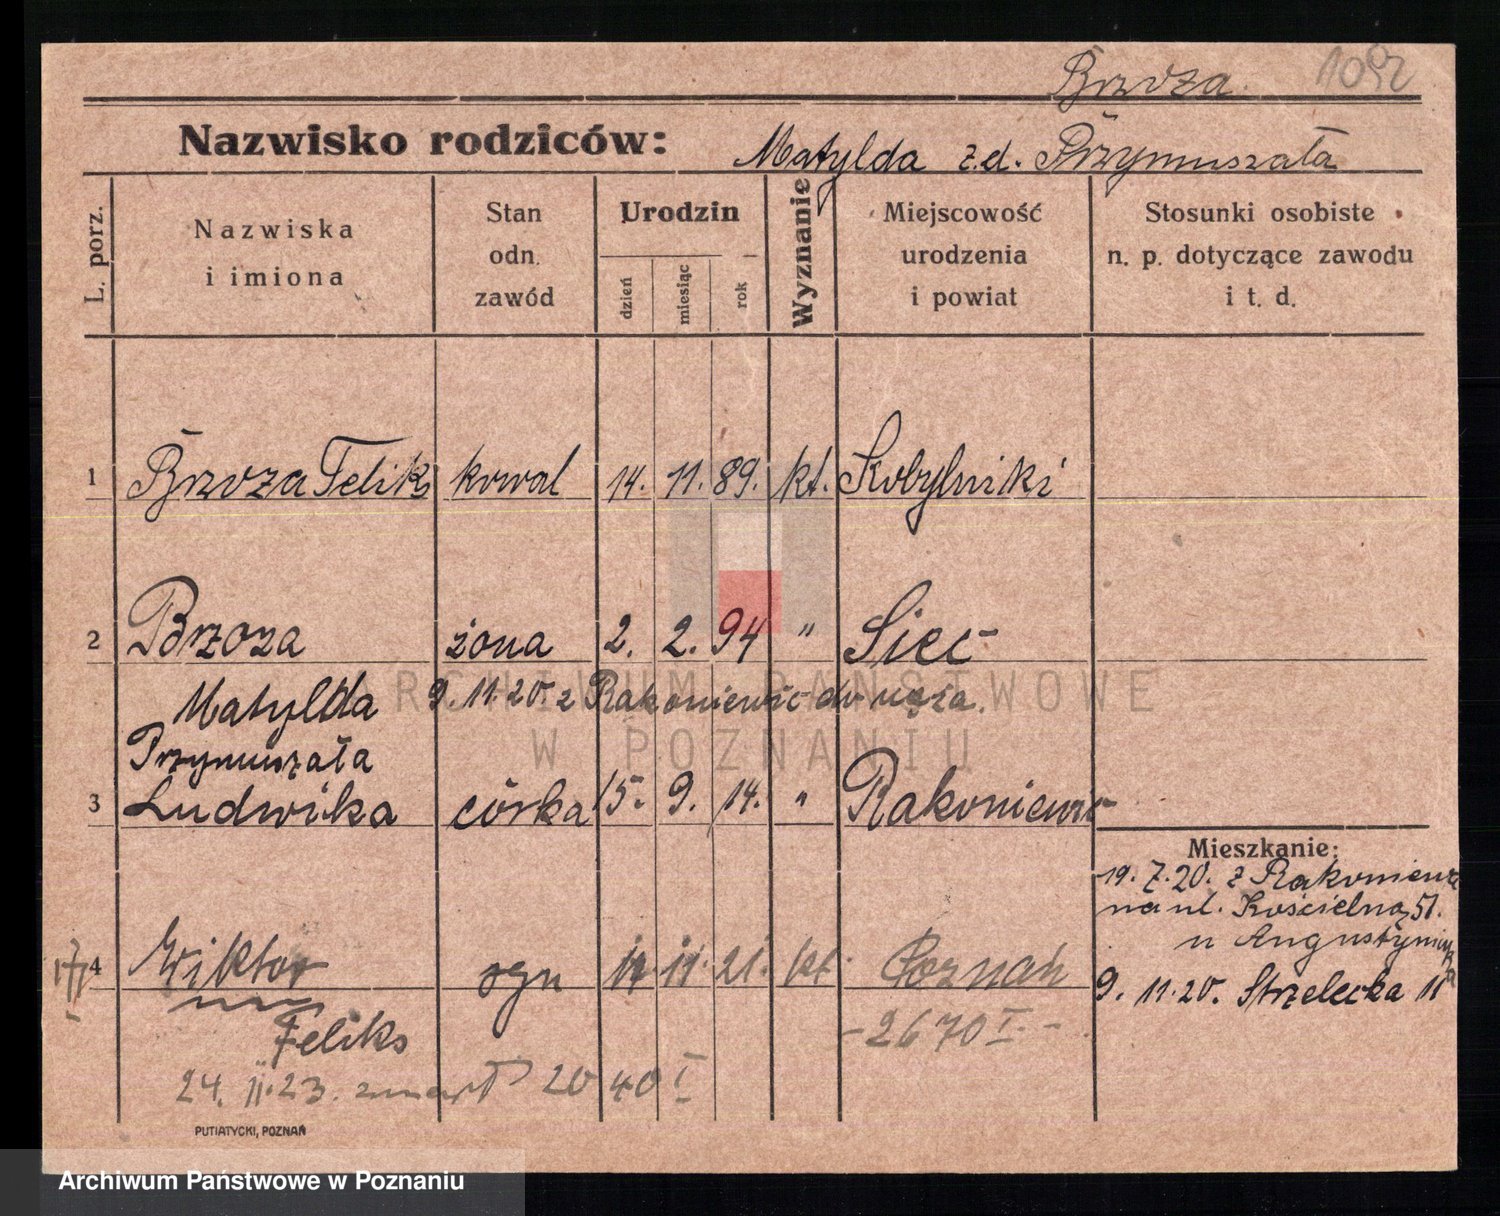 Brzoza. 1092
Nazwisko rodziców: Matylda z.d. Przymuszała
L. porz.
Nazwiska i imiona
Stan odn. zawód
Urodzin
dzień miesiąc rok
Wyznanie
Miejscowość urodzenia i powiat
Stosunki osobiste n. p. dotyczące zawodu i t. d.
1 Brzoza Feliks kowal 14. 11. 89. kt. Kobylniki
2 Brzoza żona 2. 2. 94 " Sieć
Matylda 9.11.20. z Rakoniewic do męża.
Przymuszała
3 Ludwika córka 15. 9. 14. " Rakoniewic
Mieszkanie:
19.7.20. z Rakoniewic
na ul. Kościelną 51.
u
9.11.20. Strzelecka 11
4 Wiktor syn 11. 21. kt. Poznań
Feliks -2670 I-
24. II. 23. zmarł 2040 I
PUTIATYCKI, POZNAŃ
ARCHIWUM PAŃSTWOWE
W POZNANIU
Archiwum Państwowe w Poznaniu